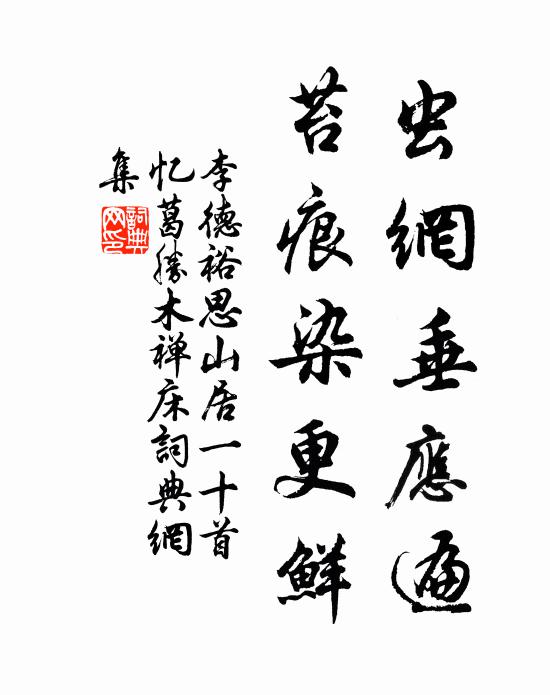 虫網垂應遍
苔痕染更鮮
李德裕思山居一十首
忆葛勝木禅床詞典網
集
詞典网印